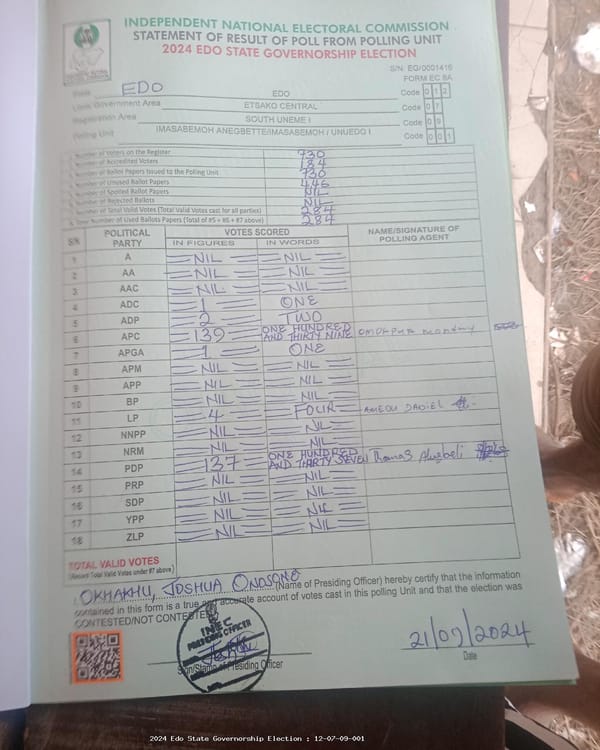 INDEPENDENT NATIONAL ELECTORAL COMMISSION
STATEMENT OF RESULT OF POLL FROM POLLING UNIT
2024 EDO STATE GOVERNORSHIP ELECTION
S/N EG/0001416
FORM EC 8A
State EDO EDO Code 0 1 2
Local Government Area ETSAKO CENTRAL Code 0 7
Registration Area SOUTH UNEME I Code 0 9
Polling Unit IMASABEMOH ANEGBETTE/IMASABEMOH / UNUEDO I Code 0 0 1
Number of Voters on the Register 730
Number of Accredited Voters
Number of Ballot Papers Issued to the Polling Unit 730
Number of Unused Ballot Papers 446
Number of Spoiled Ballot Papers NIL
Number of Rejected Ballots NIL
Number of Total Valid Votes (Total Valid Votes cast for all parties) 284
Total Number of Used Ballot Papers (Total of #5 + #6 + #7 above) 284
S/N POLITICAL PARTY VOTES SCORED NAME/SIGNATURE OF POLLING AGENT
IN FIGURES IN WORDS
1 A NIL NIL
2 AA NIL NIL
3 AAC NIL NIL
4 ADC 1 ONE
5 ADP 2 TWO
6 APC 139 ONE HUNDRED AND THIRTY NINE
7 APGA 1 ONE
8 APM NIL NIL
9 APP NIL NIL
10 BP NIL NIL
11 LP 4 FOUR AMEDU DANIEL
12 NNPP NIL NIL
13 NRM NIL NIL
14 PDP 137 ONE HUNDRED AND THIRTY SEVEN
15 PRP NIL NIL
16 SDP NIL NIL
17 YPP NIL NIL
18 ZLP NIL NIL
TOTAL VALID VOTES
(Record Total Valid Votes under #7 above)
OKHAKHU, JOSHUA ONOSONE (Name of Presiding Officer) hereby certify that the information
contained in this form is a true and accurate account of votes cast in this polling Unit and that the election was
CONTESTED/NOT CONTESTED
INEC
PRESIDING OFFICER
Sign/Stamp of Presiding Officer
21/09/2024
Date
2024 Edo State Governorship Election : 12-07-09-001